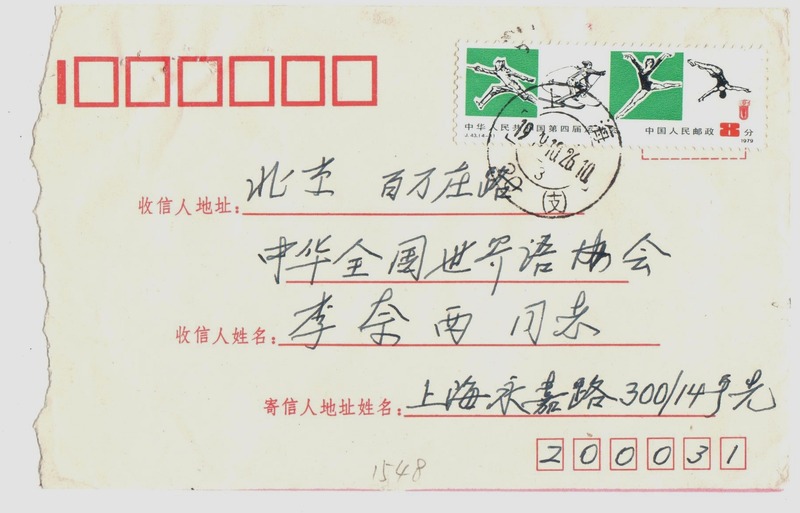 中华人民共 国第四届
J.43.(4-3)
中国人民邮政 8分
1979
上海
10.26.10
(支)
收信人地址：北京 百万庄路
中华全国世界语协会
收信人姓名：李奈西同志
寄信人地址姓名：上海永嘉路300/14
200031
1548